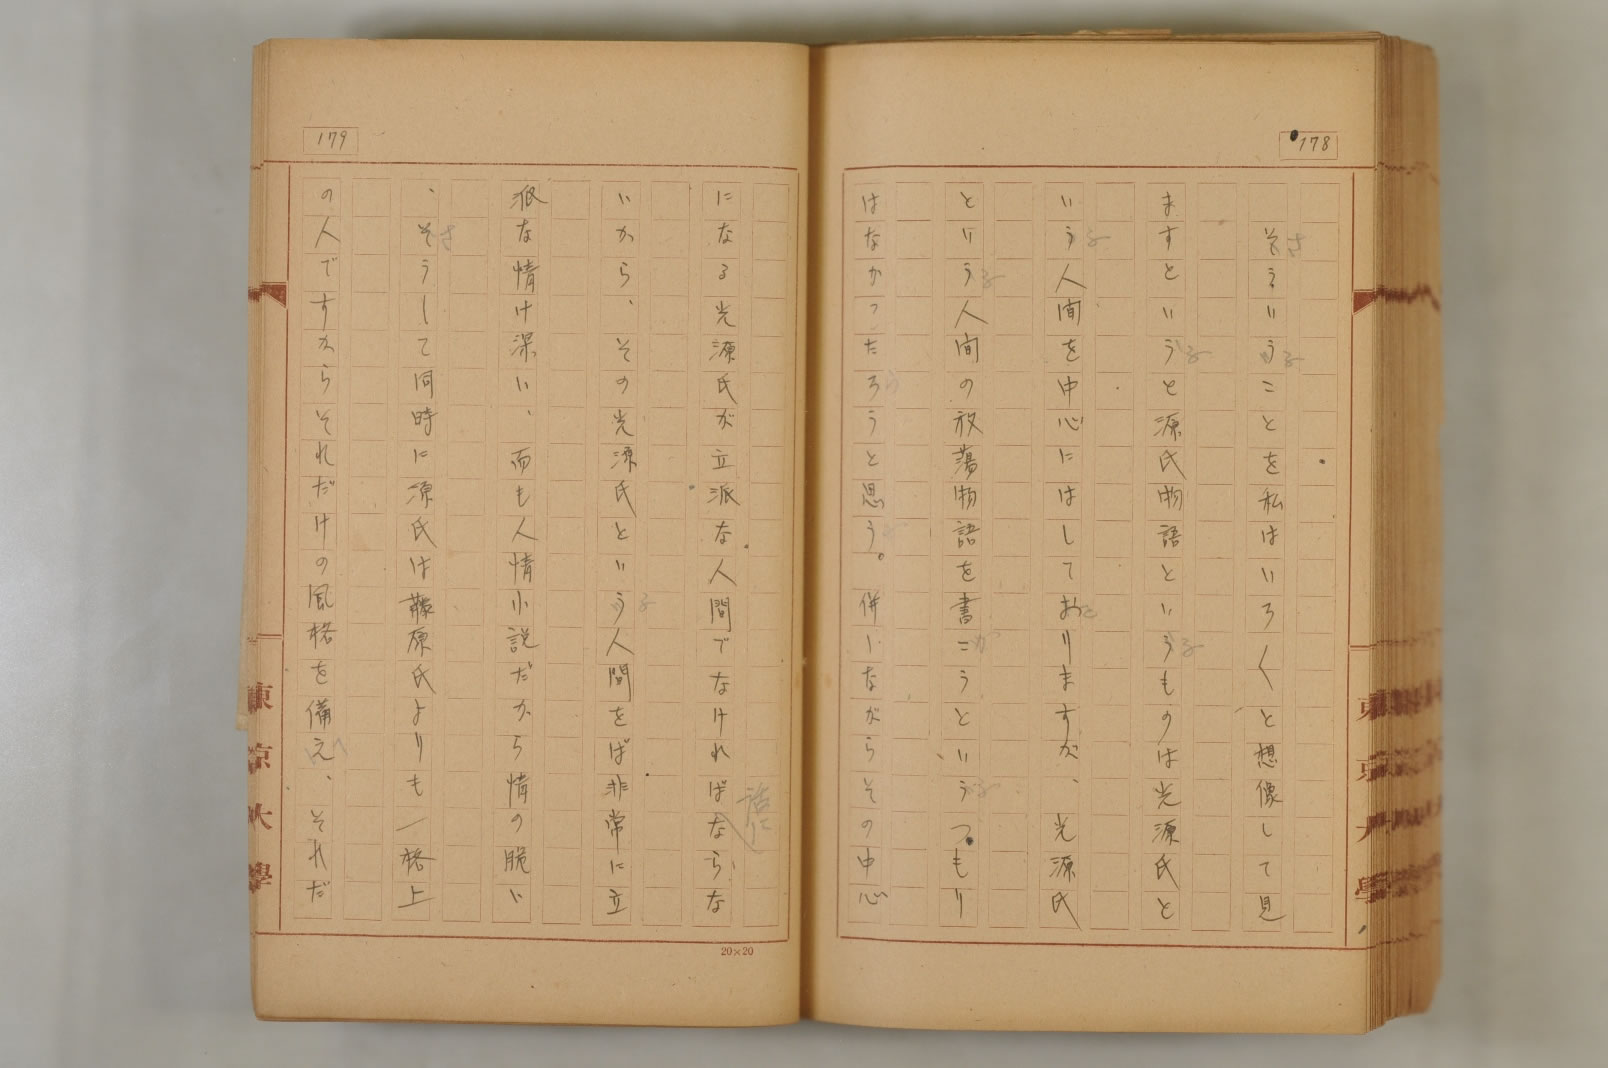 178
そういうことを私はいろ〱と想像して見
ますというと源氏物語というものは光源氏と
いう人間を中心にはしておりますが、光源氏
という人間の放蕩物語を書こうというつもり
はなかったろうと思う。併しながらその中心
179
になる光源氏が立派な人間でなければならな
いから、その光源氏という人間をば非常に立
派な情け深い、而も人情小説だから情の脆い
、そうして同時に源氏は藤原氏よりも一格上
の人ですからそれだけの風格を備え、それだ
20×20
東京大學
東京大學